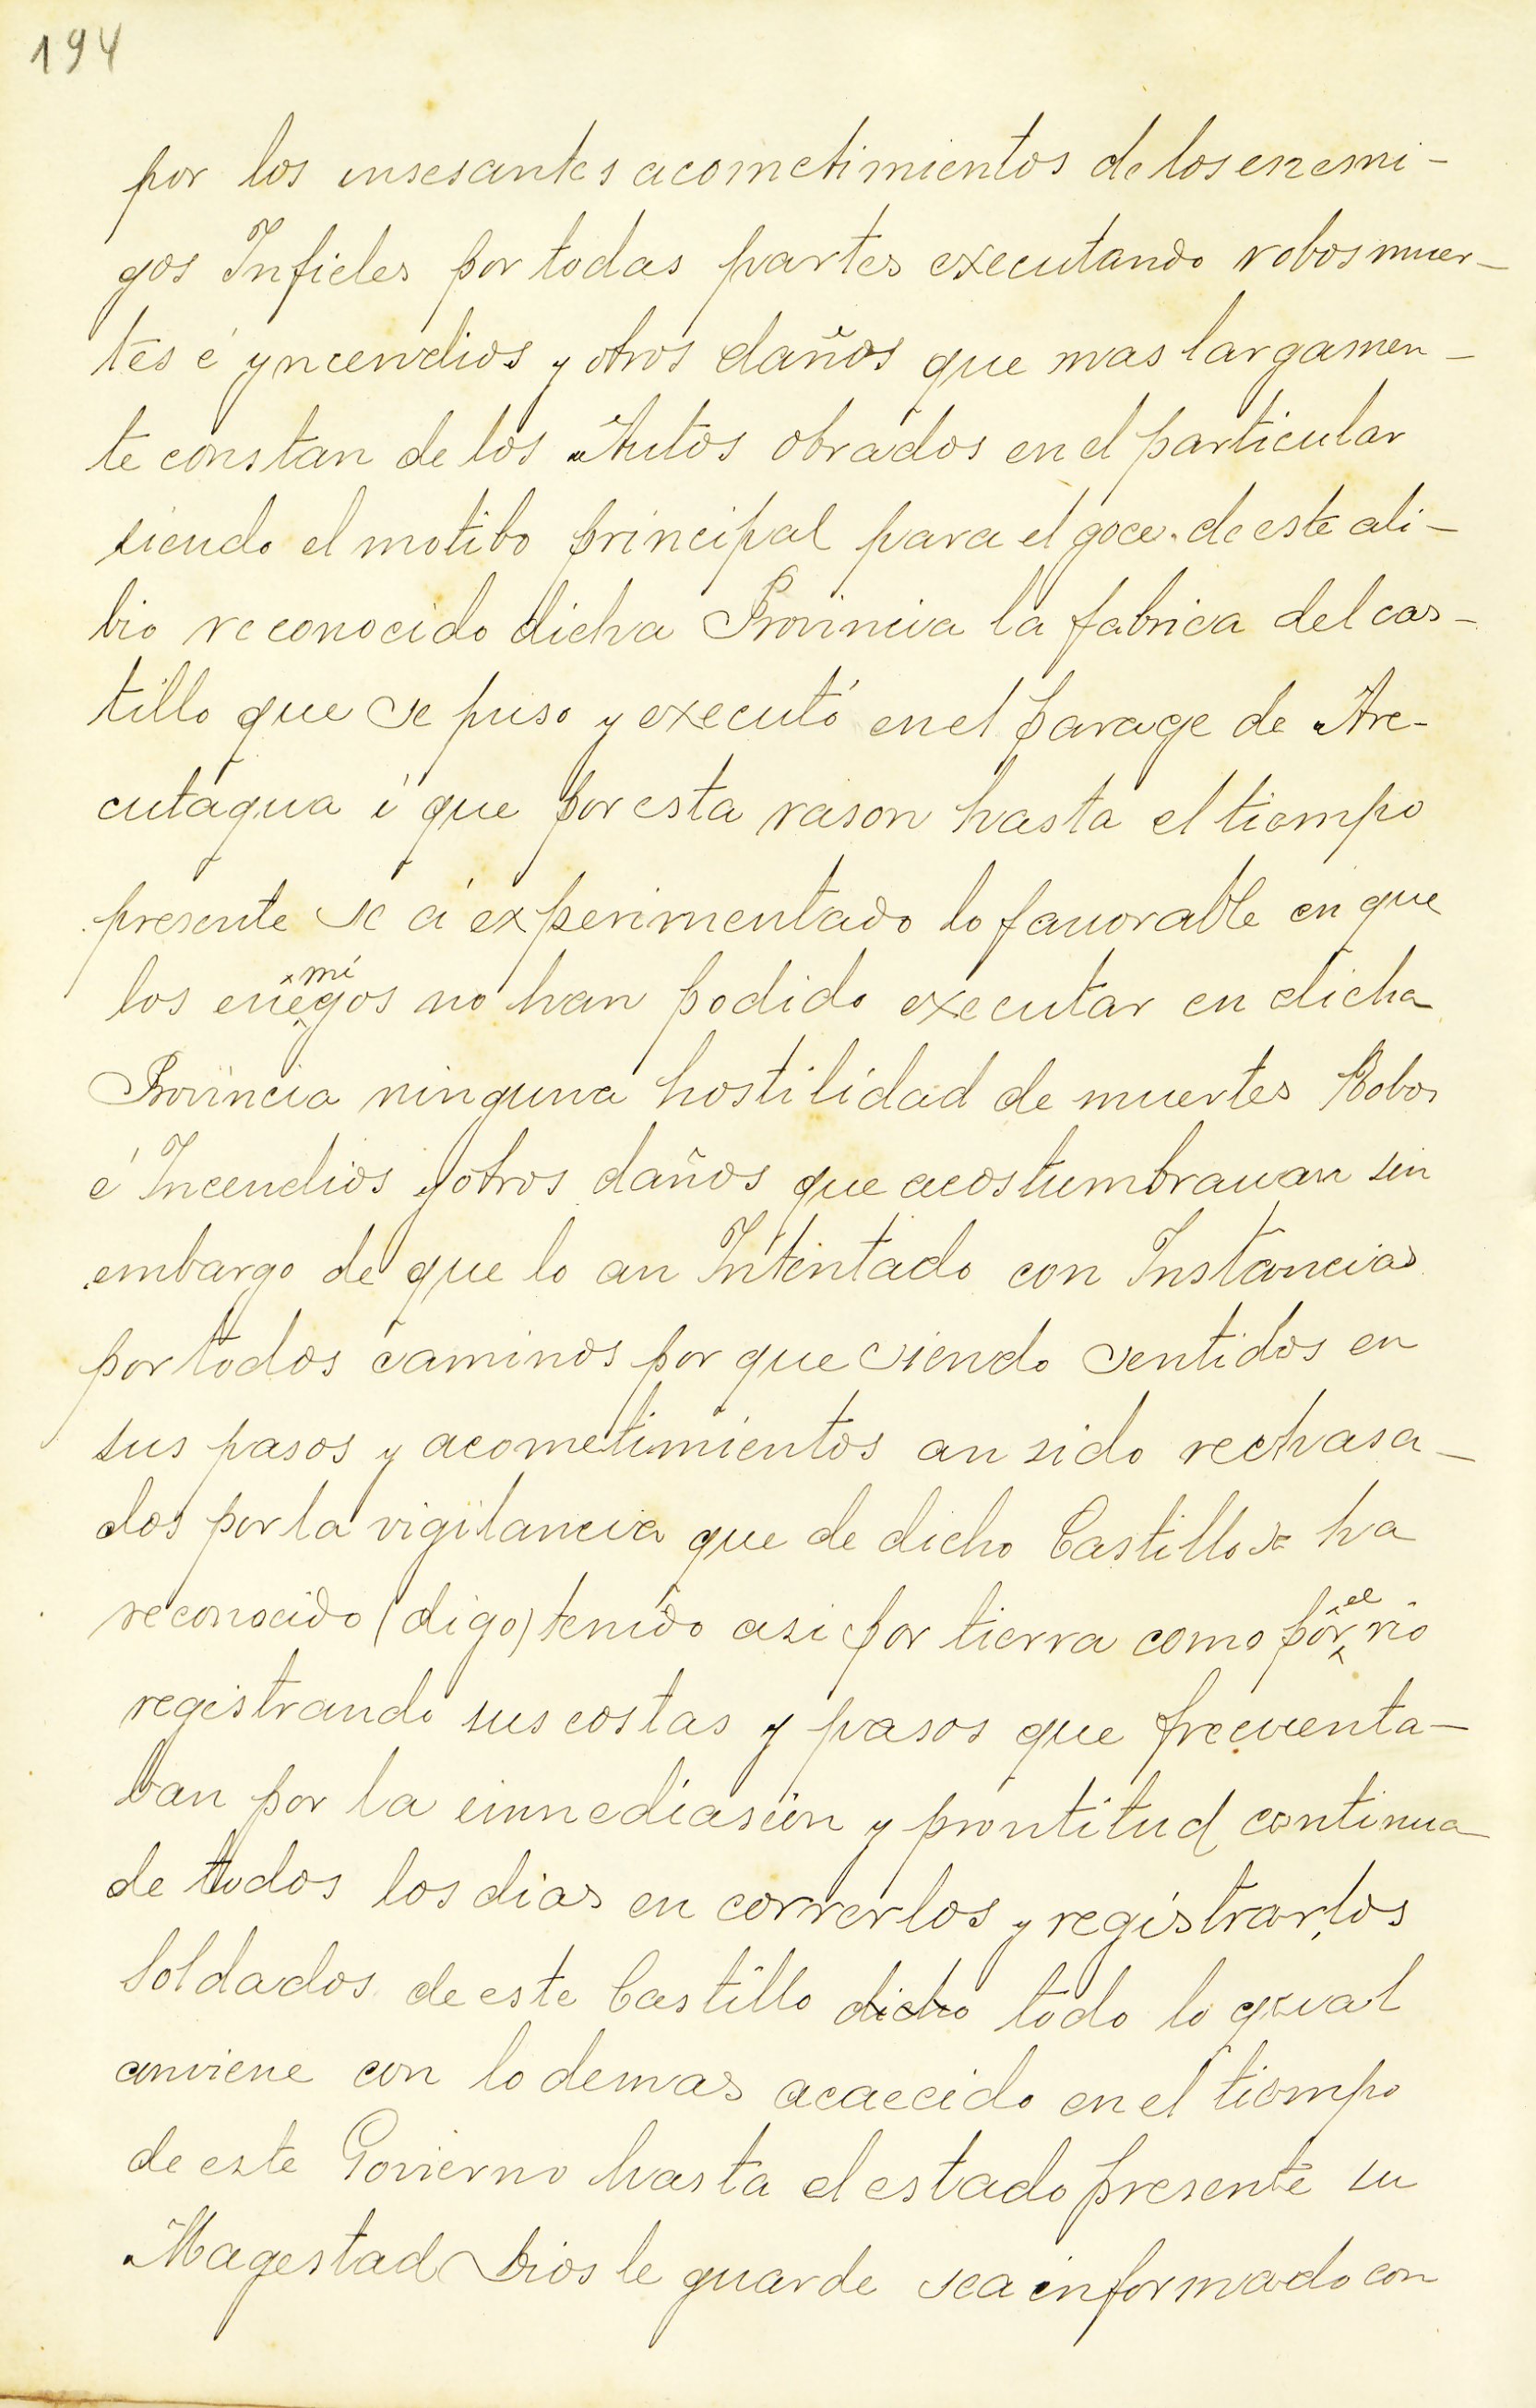 194
por los insesantes acometimientos de los enemi-
gos Infieles por todas partes executando robos muer-
tes é yncendios y otros daños que mas largamen-
te constan de los Autos obrados en el particular
siendo el motibo principal para el goce de este ali-
bio reconocido dicha Provincia la fabrica del cas-
tillo que se puso y executó en el parage de Are-
cutagua i que por esta rason hasta el tiempo
presente se á experimentado lo fauorable en que
los enemigos no han podido executar en dicha
Provincia ninguna hostilidad de muertes Robos
é Incendios y otros daños que acostumbrauan sin
embargo de que lo an Intentado con Instancias
por todos caminos por que siendo sentidos en
sus pasos y acometimientos an sido rechasa-
dos por la vigilancia que de dicho Castillo se ha
reconocido (digo) tenido asi por tierra como por el rio
registrando sus costas y pasos que frecuenta-
ban por la inmediasion y prontitud continua
de todos los dias en correrlos y registrar los
Soldados de este Castillo dicho todo lo qual
conviene con lo demas acaecido en el tiempo
de este Govierno hasta el estado presente su
Magestad Dios le guarde sea informado con